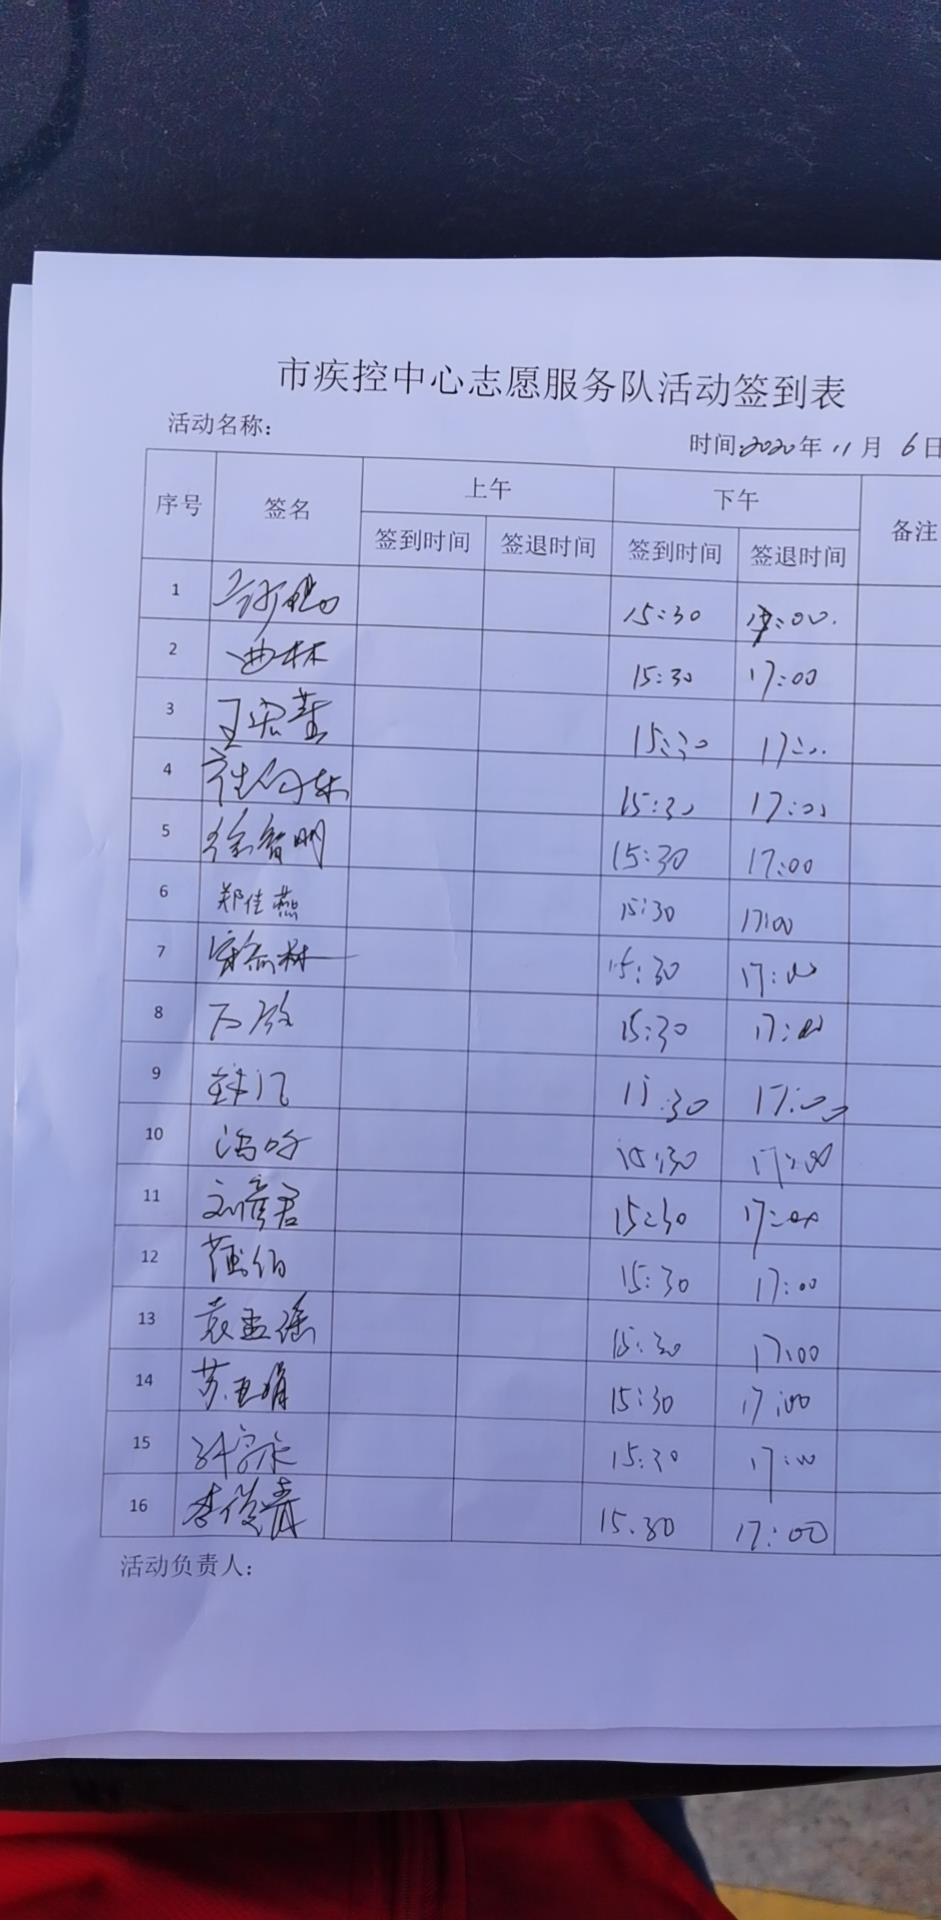 市疾控中心志愿服务队活动签到表
活动名称：
时间：2020年11月6日
序号 签名 上午 下午 备注
签到时间 签退时间 签到时间 签退时间
1 15:30 17:00.
2 曲林 15:30 17:00
3 王宏蕾 15:30 17:00
4 15:30 17:00
5 徐智明 15:30 17:00
6 郑佳燕 15:30 17:00
7 15:30 17:00
8 15:30 17:00
9 15:30 17:00
10 15:30 17:00
11 刘彦君 15:30 17:00
12 15:30 17:00
13 袁孟瑶 15:30 17:00
14 苏亚娟 15:30 17:00
15 15:30 17:00
16 李俊青 15.30 17:00
活动负责人：